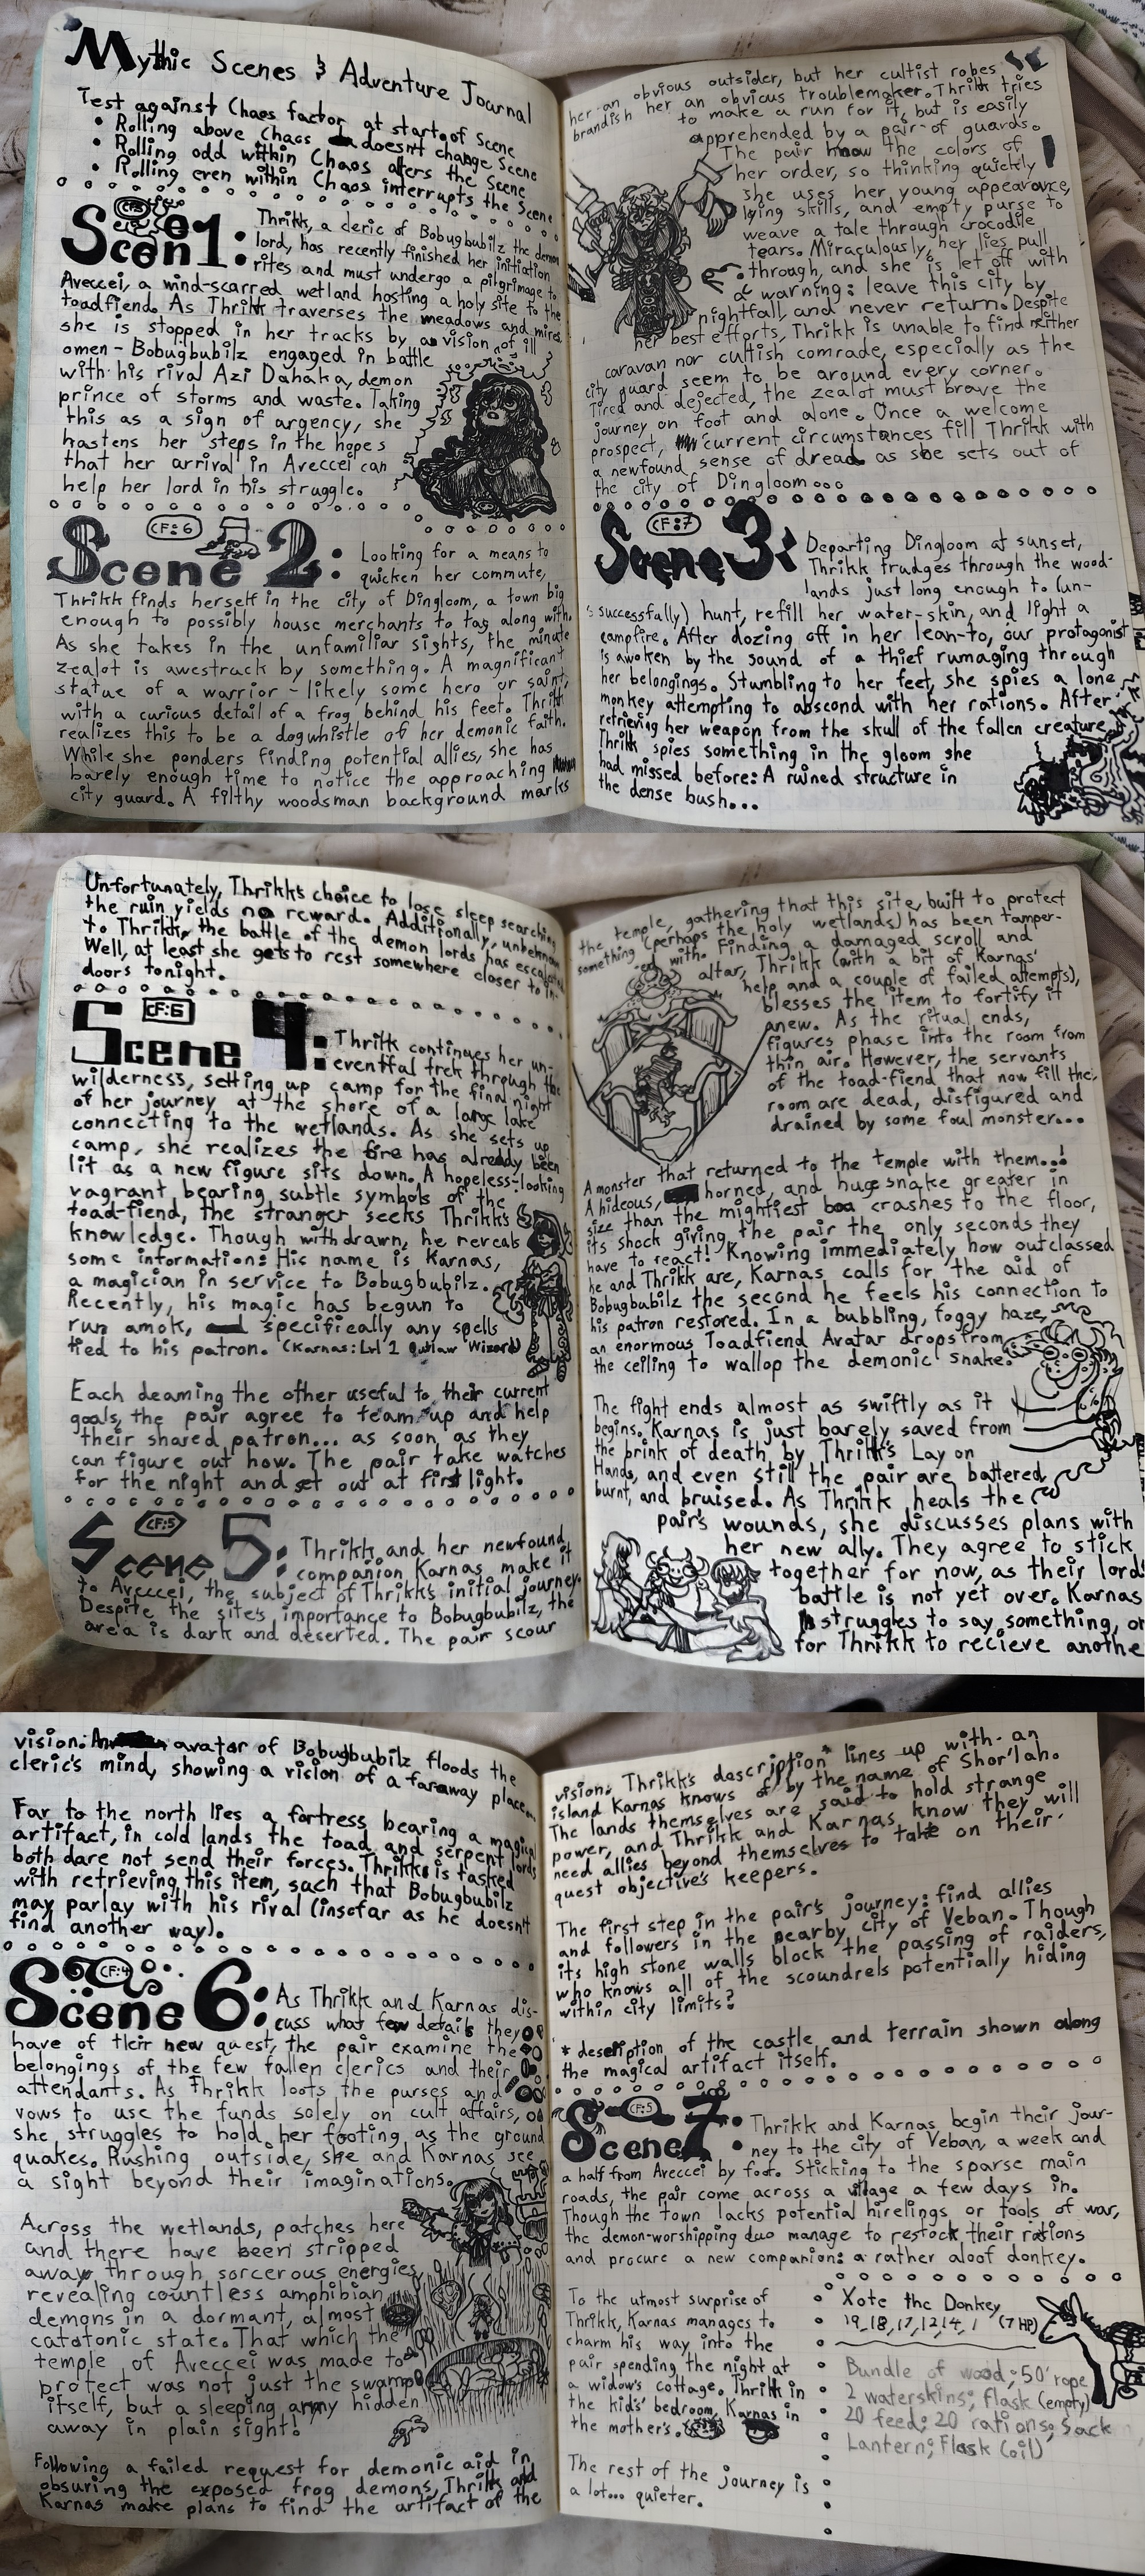 Mythic Scenes & Adventure Journal
Test against Chaos factor at start of Scene
• Rolling above Chaos doesn't change Scene
• Rolling odd within Chaos alters the Scene
• Rolling even within Chaos interrupts the Scene
Scene 1:
Thrikk, a cleric of Bobugbubilz the demon
lord, has recently finished her initiation
rites and must undergo a pilgrimage to
Aveccei, a wind-scarred wetland hosting a holy site to the
toadfiend. As Thrikk traverses the meadows and mires
she is stopped in her tracks by a vision of ill
omen - Bobugbubilz engaged in battle
with his rival Azi Dahaka, demon
prince of storms and waste. Taking
this as a sign of argency, she
hastens her steps in the hopes
that her arrival in Aveccei can
help her lord in his struggle.
CF:6
Scene 2:
Looking for a means to
quicken her commute,
Thrikk finds herself in the city of Dingloom, a town big
enough to possibly house merchants to tag along with.
As she takes in the unfamiliar sights, the minute
zealot is awestruck by something. A magnificent
statue of a warrior - likely some hero or saint,
with a curious detail of a frog behind his feet. Thrikk
realizes this to be a dogwhistle of her demonic faith.
While she ponders finding potential allies, she has
barely enough time to notice the approaching
city guard. A filthy woodsman background marks
her an obvious outsider, but her cultist robes
brandish her an obvious troublemaker. Thrikk tries
to make a run for it, but is easily
apprehended by a pair of guards.
The pair know the colors of
her order, so thinking quickly
she uses her young appearance,
lying skills, and empty purse to
weave a tale through crocodile
tears. Miraculously, her lies pull
through, and she is let off with
a warning: leave this city by
nightfall, and never return. Despite
her best efforts, Thrikk is unable to find neither
caravan nor cultish comrade, especially as the
city guard seem to be around every corner.
Tired and dejected, the zealot must brave the
journey on foot and alone. Once a welcome
prospect, current circumstances fill Thrikk with
a newfound sense of dread as she sets out of
the city of Dingloom...
CF:7
Scene 3:
Departing Dingloom at sunset,
Thrikk trudges through the wood-
lands just long enough to (un-
successfully) hunt, refill her water-skin, and light a
campfire. After dozing off in her lean-to, our protagonist
is awoken by the sound of a thief rumaging through
her belongings. Stumbling to her feet, she spies a lone
monkey attempting to abscond with her rations. After
retrieving her weapon from the skull of the fallen creature,
Thrikk spies something in the gloom she
had missed before: A ruined structure in
the dense bush...
Unfortunately, Thrikk's choice to lose sleep searching
the ruin yields no reward. Additionally, unbeknown
to Thrikk, the battle of the demon lords has escalated
Well, at least she gets to rest somewhere closer to in-
doors tonight.
CF:6
Scene 4:
Thrikk continues her un-
eventful trek through the
wilderness, setting up camp for the final night
of her journey at the shore of a large lake
connecting to the wetlands. As she sets up
camp, she realizes the fire has already been
lit as a new figure sits down. A hopeless-looking
vagrant bearing subtle symbols of the
toad-fiend, the stranger seeks Thrikk's
knowledge. Though withdrawn, he reveals
some information: His name is Karnas,
a magician in service to Bobugbubilz.
Recently, his magic has begun to
run amok, specifically any spells
tied to his patron. (Karnas: Lvl 1 Outlaw Wizard)
Each deaming the other useful to their current
goals, the pair agree to team up and help
their shared patron... as soon as they
can figure out how. The pair take watches
for the night and set out at first light.
CF:5
Scene 5:
Thrikk and her newfound
companion Karnas make it
to Aveccei, the subject of Thrikk's initial journey.
Despite the site's importance to Bobugbubilz, the
area is dark and deserted. The pair scour
the temple, gathering that this site, built to protect
something (perhaps the holy wetlands) has been tamper-
ed with. Finding a damaged scroll and
altar, Thrikk (with a bit of Karnas'
help and a couple of failed attempts),
blesses the item to fortify it
anew. As the ritual ends,
figures phase into the room from
thin air. However, the servants
of the toad-fiend that now fill the
room are dead, disfigured and
drained by some foul monster...
A monster that returned to the temple with them...!
A hideous, horned, and huge snake greater in
size than the mightiest boa crashes to the floor,
its shock giving the pair the only seconds they
have to react! Knowing immediately how outclassed
he and Thrikk are, Karnas calls for the aid of
Bobugbubilz the second he feels his connection to
his patron restored. In a bubbling, foggy haze,
an enormous Toadfiend Avatar drops from
the ceiling to wallop the demonic snake.
The fight ends almost as swiftly as it
begins. Karnas is just barely saved from
the brink of death by Thrikk's Lay on
Hands, and even still the pair are battered,
burnt, and bruised. As Thrikk heals the
pair's wounds, she discusses plans with
her new ally. They agree to stick
together for now, as their lord
battle is not yet over. Karnas
struggles to say something, or
for Thrikk to recieve anothe
vision: An avatar of Bobugbubilz floods the
cleric's mind, showing a vision of a faraway place...
Far to the north lies a fortress bearing a magical
artifact, in cold lands the toad and serpent lords
both dare not send their forces. Thrikk is tasked
with retrieving this item, such that Bobugbubilz
may parlay with his rival (insofar as he doesn't
find another way).
CF:4
Scene 6:
As Thrikk and Karnas dis-
cuss what few details they
have of their new quest, the pair examine the
belongings of the few fallen clerics and their
attendants. As Thrikk loots the purses and
vows to use the funds solely on cult affairs,
she struggles to hold her footing as the ground
quakes. Rushing outside, she and Karnas see
a sight beyond their imaginations.
Across the wetlands, patches here
and there have been stripped
away through sorcerous energies,
revealing countless amphibian
demons in a dormant, almost
catatonic state. That which the
temple of Aveccei was made to
protect was not just the swamp
itself, but a sleeping army hidden
away in plain sight!
Following a failed request for demonic aid in
obsuring the exposed frog demons, Thrikk and
Karnas make plans to find the artifact of the
vision. Thrikk's description* lines up with an
island Karnas knows of by the name of Shor'lah.
The lands themselves are said to hold strange
power, and Thrikk and Karnas know they will
need allies beyond themselves to take on their
quest objective's keepers.
The first step in the pair's journey: find allies
and followers in the nearby city of Veban. Though
its high stone walls block the passing of raiders,
who knows all of the scoundrels potentially hiding
within city limits?
* description of the castle and terrain shown along
the magical artifact itself.
CF:5
Scene 7:
Thrikk and Karnas begin their jour-
ney to the city of Veban, a week and
a half from Aveccei by foot. Sticking to the sparse main
roads, the pair come across a village a few days in.
Though the town lacks potential hirelings or tools of war,
the demon-worshipping duo manage to restock their rations
and procure a new companion: a rather aloof donkey.
To the utmost surprise of
Thrikk, Karnas manages to
charm his way into the
pair spending the night at
a widow's cottage. Thrikk in
the kids' bedroom, Karnas in
the mother's.
The rest of the journey is
a lot... quieter.
Xote the Donkey
19, 18, 17, 12, 14, 1 (7 HP)
Bundle of wood; 50' rope
2 waterskins; flask (empty)
20 feed; 20 rations; Sack
Lantern; Flask (oil)